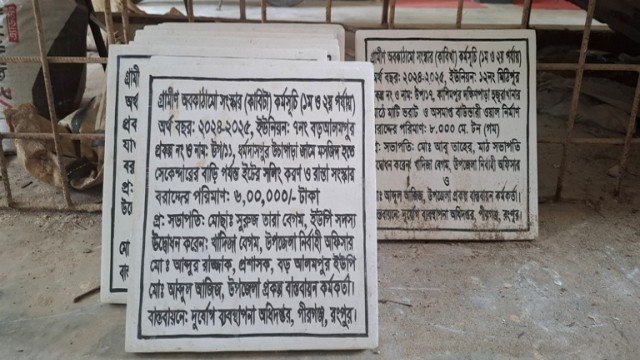 গ্রামীণ অবকাঠামো সংস্কার (কাবিটা) কর্মসূচি (১ম ও ২য় পর্যায়)
অর্থ বছর: ২০২৪-২০২৫, ইউনিয়ন: ৭নং বড়আলমপুর
প্রকল্প নং ও নাম: উপ/১১, ধর্মদাসপুর উচাপাড়া জামে মসজিদ হতে
সেকেন্দারের বাড়ি পর্যন্ত ইটের সলিং করণ ও রাস্তা সংস্কার
বরাদ্দের পরিমাণ: ৬,00,000/- টাকা
প্র: সভাপতি: মোছা: সুরুজ তারা বেগম, ইউপি সদস্য
উদ্বোধন করেন: খাদিজা বেগম, উপজেলা নির্বাহী অফিসার
মো: আব্দুর রাজ্জাক, প্রশাসক, বড় আলমপুর ইউপি
মো: আব্দুল আজিজ, উপজেলা প্রকল্প বাস্তবায়ন কর্মকর্তা।
বাস্তবায়নে: দুর্যোগ ব্যবস্থাপনা অধিদপ্তর, পীরগঞ্জ, রংপুর।
গ্রামীণ অবকাঠামো সংস্কার (কাবিখা) কর্মসূচি (১ম ও ২য় পর্যায়)
অর্থ বছর: ২০২৪-২০২৫, ইউনিয়ন: ১২নং মিঠিপুর
নং ও নাম: উপ/১৭, কাশিমপুর দক্ষিণপাড়া হুজুরাখানার
মাঠে মাটি ভরাট ও অসমাপ্ত বাউন্ডারী ওয়াল নির্মাণ
বরাদ্দের পরিমাণ: ৮.০০০ মে. টন (গম)
সভাপতি: মো: আবু তাহের, মাঠ সভাপতি
উদ্বোধন করেন: খাদিজা বেগম, উপজেলা নির্বাহী অফিসার
ও
মো: আব্দুল আজিজ, উপজেলা প্রকল্প বাস্তবায়ন কর্মকর্তা।
বাস্তবায়নে: দুর্যোগ ব্যবস্থাপনা অধিদপ্তর, পীরগঞ্জ, রংপুর।